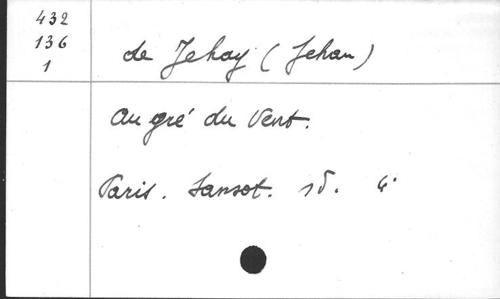 432
136
1
de Jehay (Jehan)
Au gré du Vent.
Paris. Sansot. sd. 4°